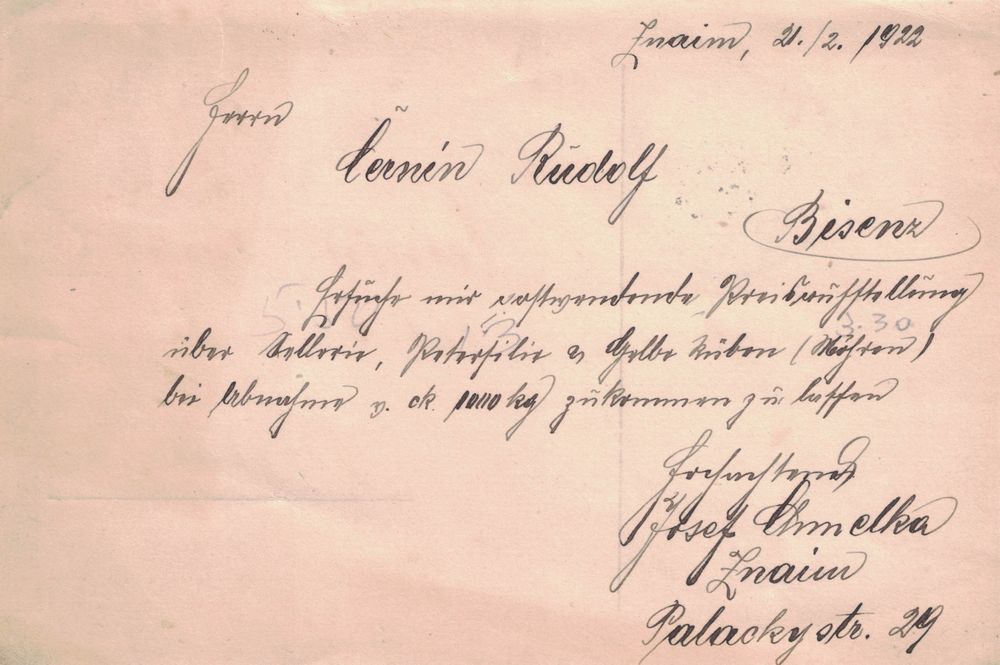 Znaim, 21./2. 1922
Herrn
Černin Rudolf
Bisenz
Ersuche mir postwendende Preisaufstellung
über Sellerie, Petersilie & Gelbe Rüben (Möhren)
3.30
bei Abnahme v. ck. 1000 kg zukommen zu lassen
Hochachtend
Josef Chmelka
Znaim
Palackystr. 29